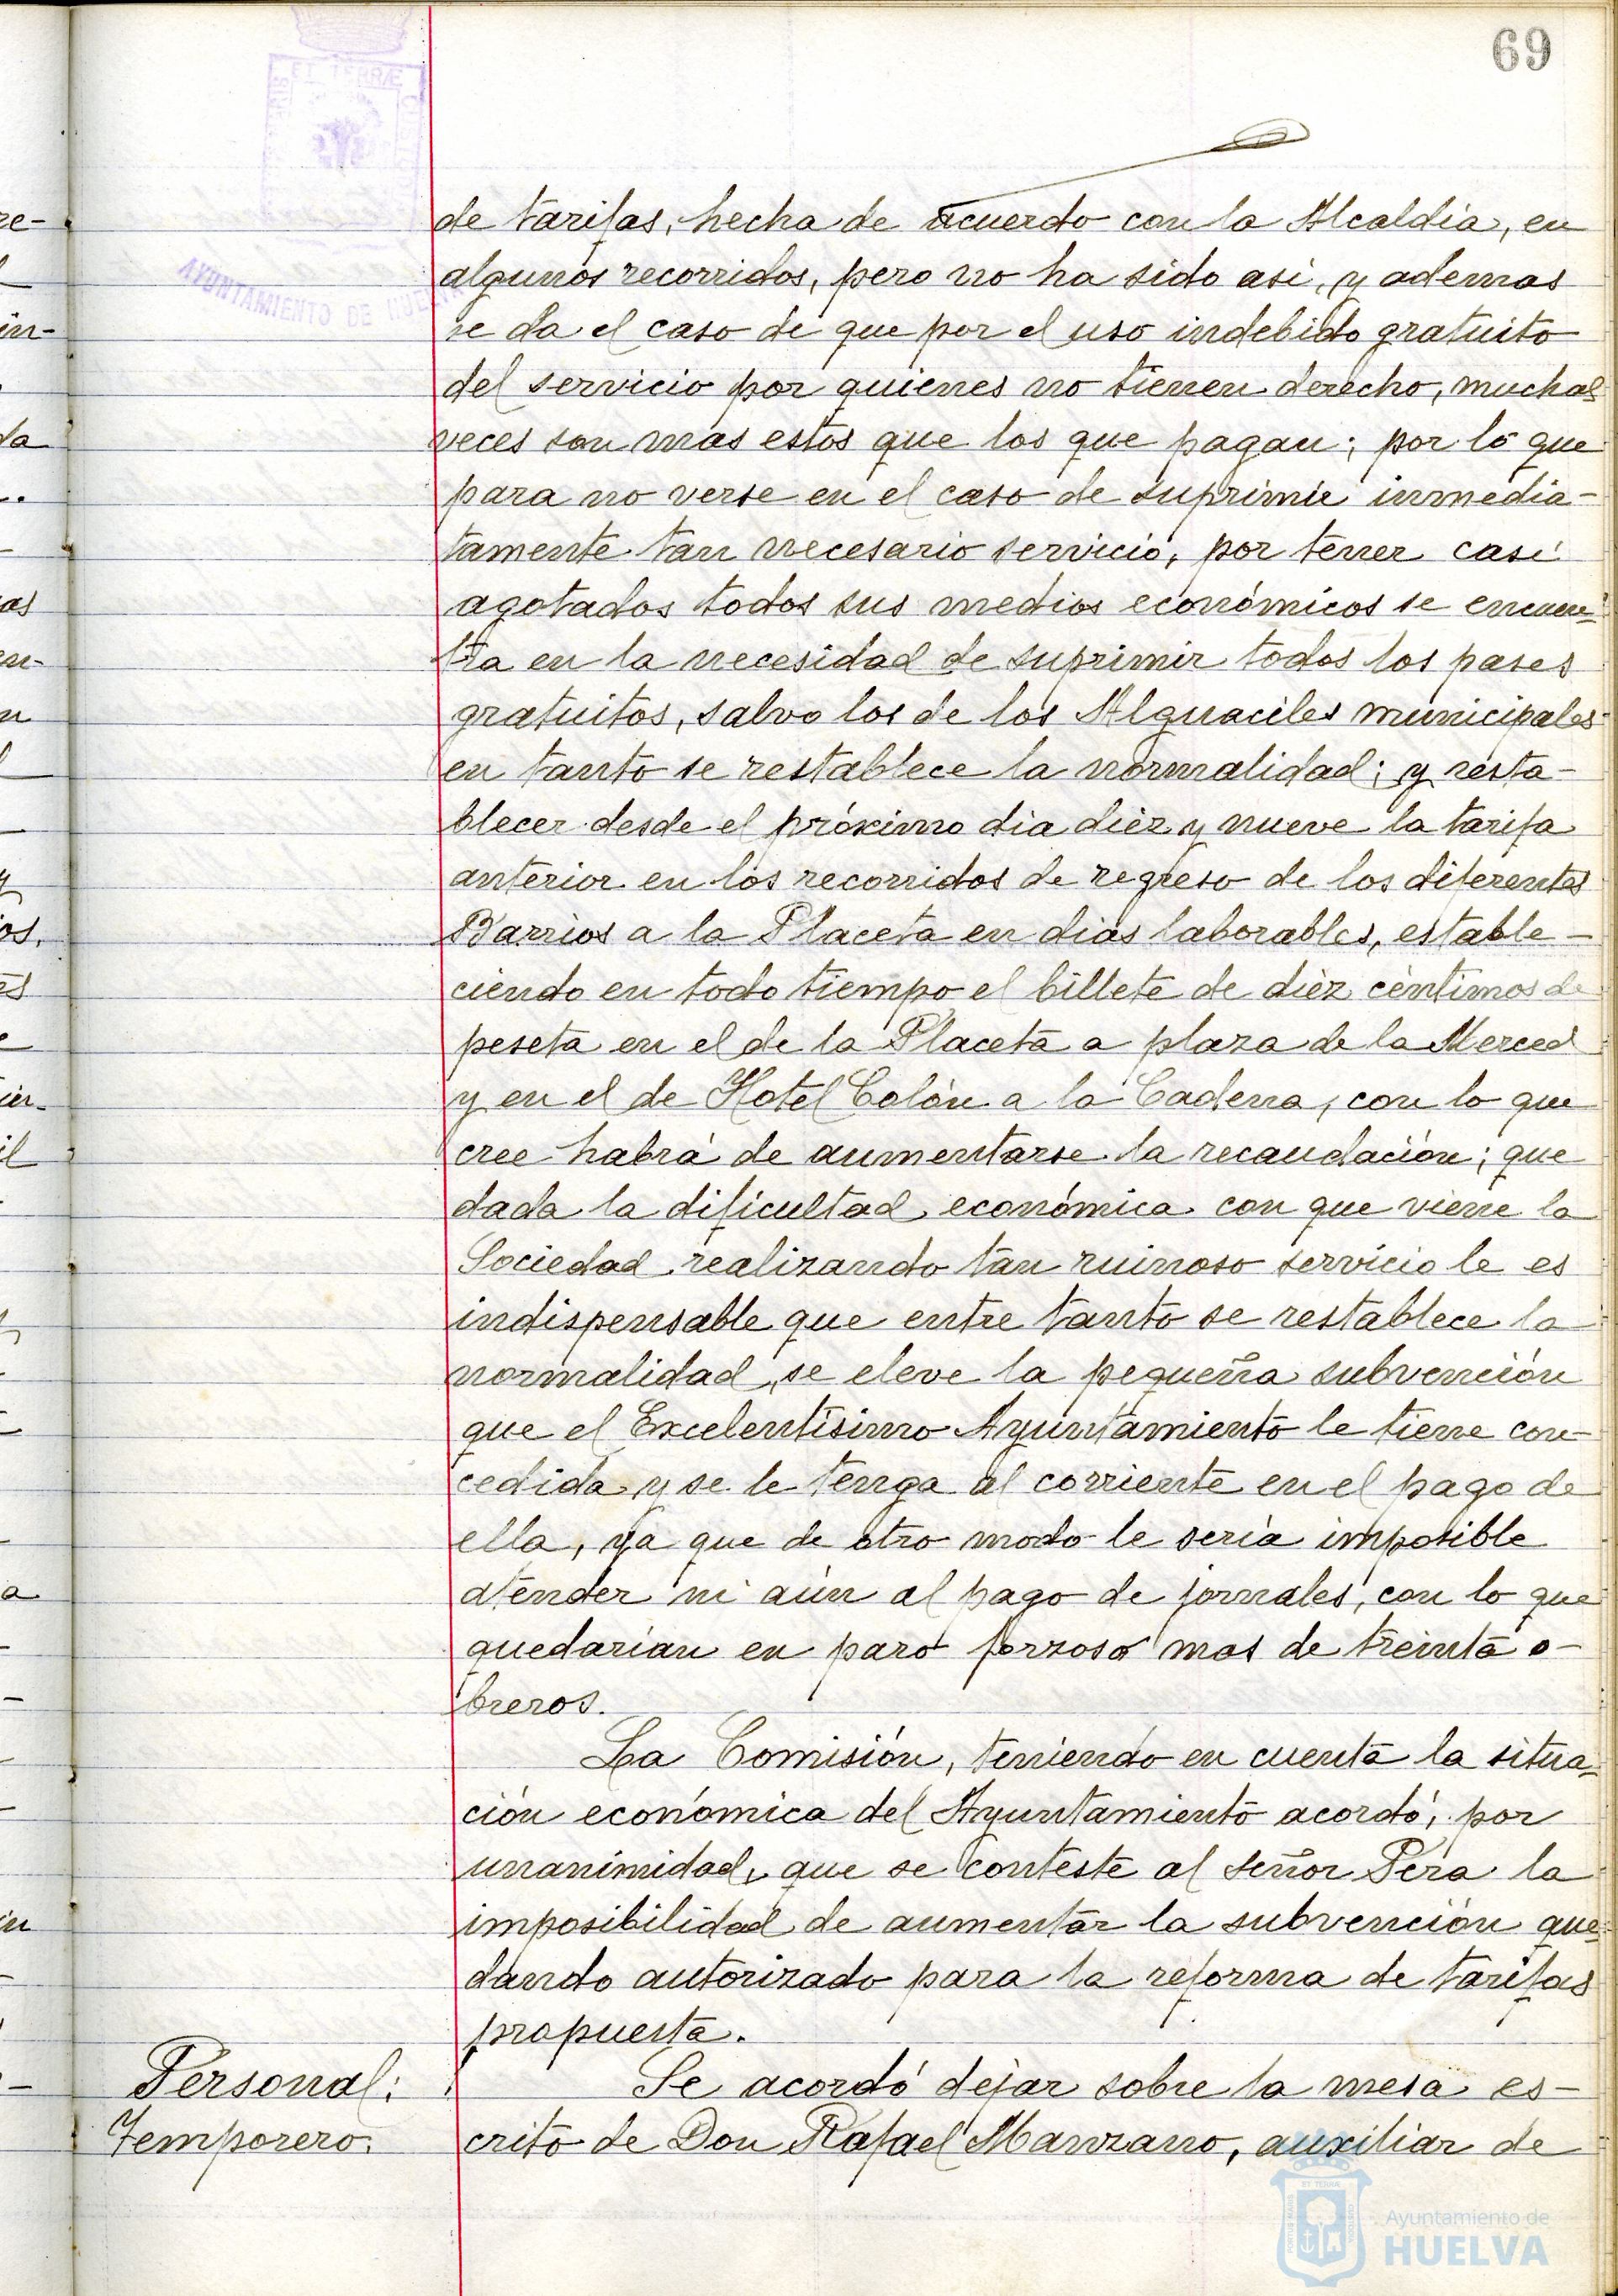 69
de tarifas, hecha de acuerdo con la Alcaldia, en
algunos recorridos, pero no ha sido asi, y ademas
se da el caso de que por el uso indebido gratuito
del servicio por quienes no tienen derecho, muchas
veces son mas estos que los que pagan; por lo que
para no verse en el caso de suprimir inmedia-
tamente tan necesario servicio, por tener casi
agotados todos sus medios económicos se encuen-
tra en la necesidad de suprimir todos los pases
gratuitos, salvo los de los Alguaciles municipales
en tanto se restablece la normalidad; y resta-
blecer desde el próximo dia diez y nueve la tarifa
anterior en los recorridos de regreso de los diferentes
Barrios a la Placeta en dias laborables, estable-
ciendo en todo tiempo el billete de diez céntimos de
peseta en el de la Placeta a plaza de la Merced
y en el de Hotel Colón a la Cadena, con lo que
cree habrá de aumentarse la recaudación; que
dada la dificultad económica con que viene la
Sociedad realizando tan ruinoso servicio le es
indispensable que entre tanto se restablece la
normalidad, se eleve la pequeña subvención
que el Excelentísimo Ayuntamiento le tiene con-
cedida y se le tenga al corriente en el pago de
ella, ya que de otro modo le sería imposible
atender ni aún al pago de jornales, con lo que
quedarian en paro forzoso mas de treinta o-
breros.
La Comisión, teniendo en cuenta la situa-
ción económica del Ayuntamiento acordó, por
unanimidad, que se conteste al señor Pera la
imposibilidad de aumentar la subvención que-
dando autorizado para la reforma de tarifas
propuesta.
Personal:
Temporero.
Se acordó dejar sobre la mesa es-
crito de Don Rafael Manzano, auxiliar de
AYUNTAMIENTO DE HUELVA
Ayuntamiento de
HUELVA